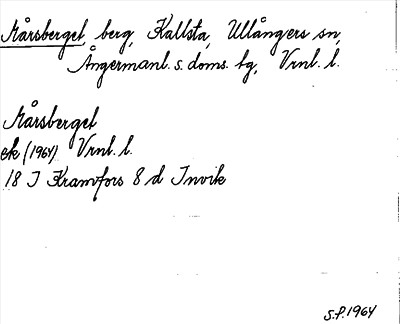 Mårsberget, berg, Kallsta, Ullångers sn,
Ångermanl. s. doms. tg, Vrnl. l.
Mårsberget
ek (1964) Vrnl. l.
18 I Kramfors 8 d Invik
S.P. 1964